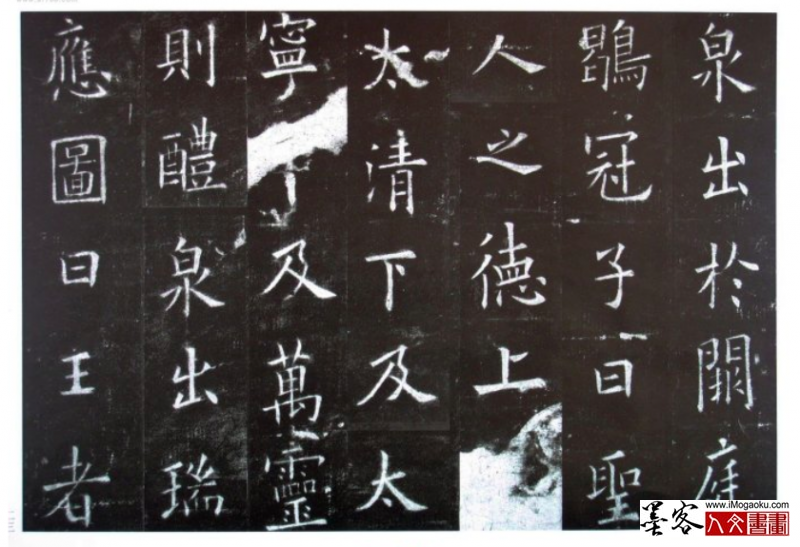 泉出於闕庭
鶡冠子曰聖
人之德上
太清下及太
寧及萬靈
則醴泉出瑞
應圖曰王者
墨客
www.iMogaoku.com
人文書畫